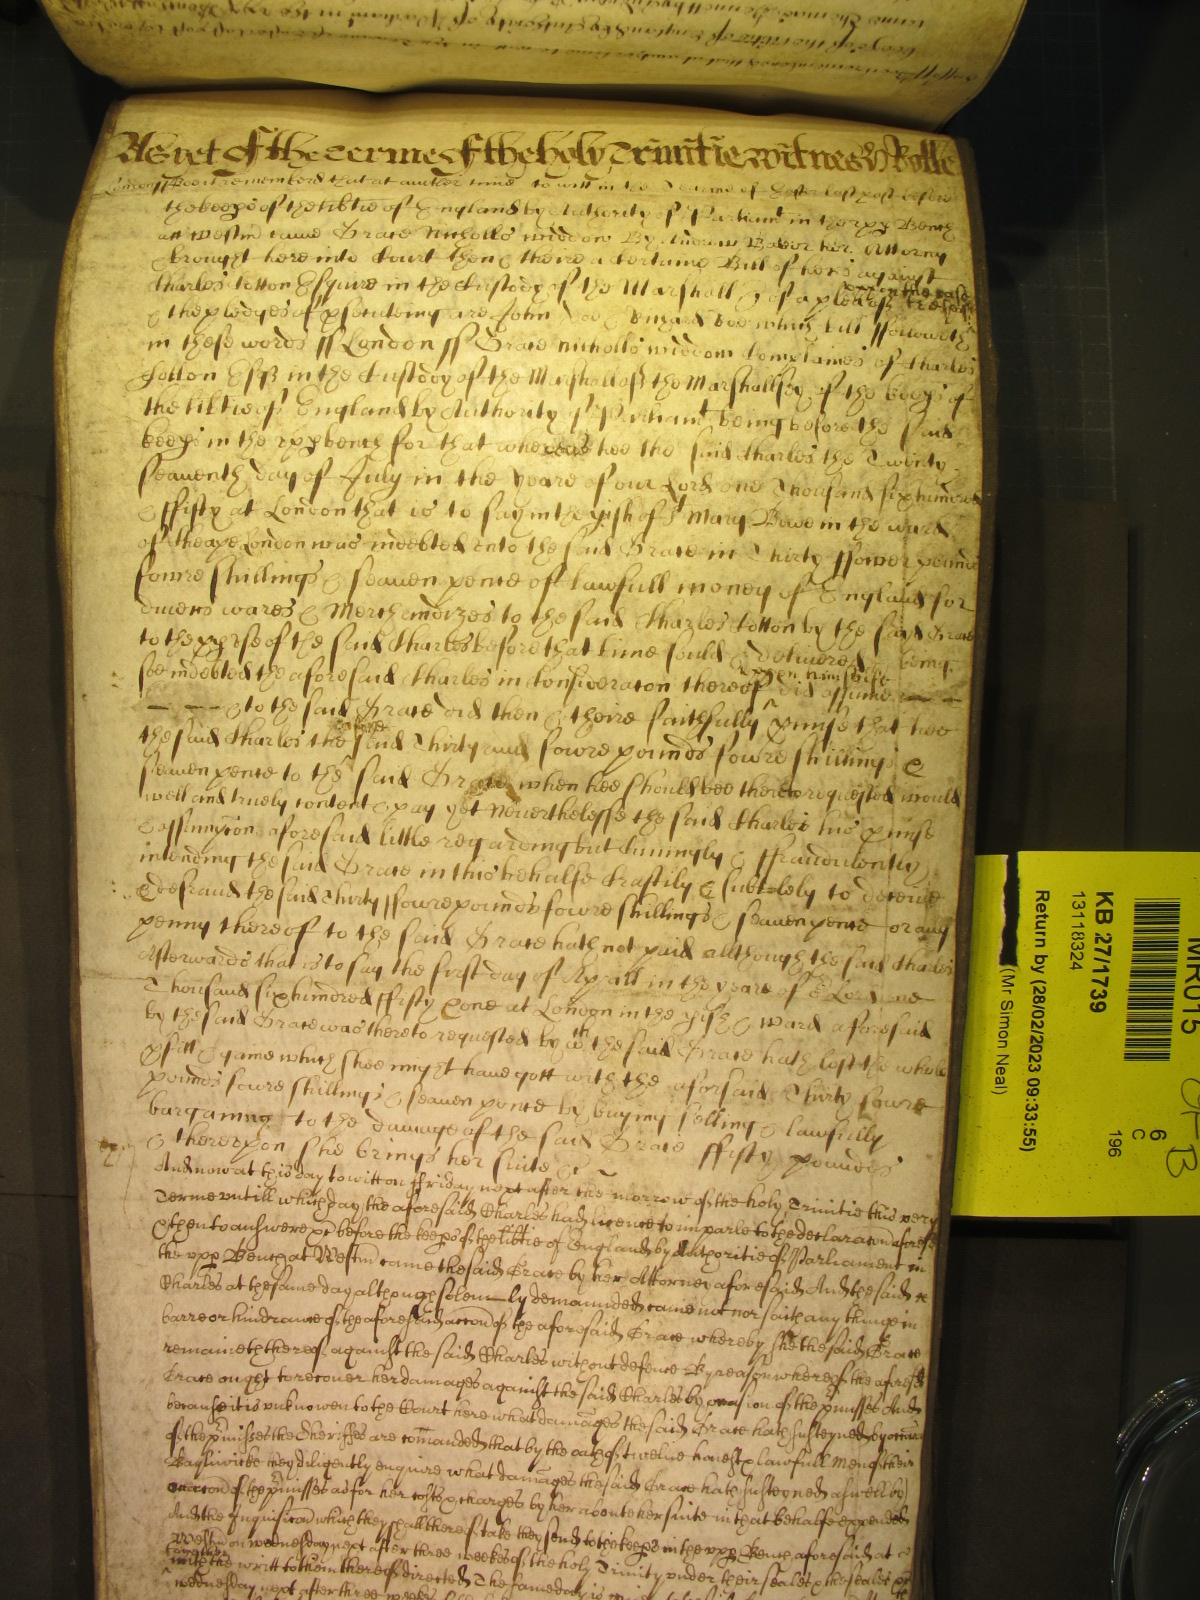 As yet of the terme of the holy Trinitie witnes H Rolle
London ss Bee it remembred that at another time to witt in the Tearme of Easter last past before
the keeps of the libtie of England by Authority of Parliamt in the upp Bench
att Westm came Grace Nicholls widdow By Andrew Baber her Attorney
& brought here into Court then & there a certaine Bill of hers against
Charles Cotton Esquire in the Custody of the Marshall &c of a plea of trespas upon the case
& the pledges of psecuteing are John Doe & Richard Roe which bill followeth
in these words ss London ss Grace Nicholls widdow Complaines of Charles
Cotton Esqr in the Custody of the Marshall of the Marshallsey of the keeps of
the libtie of England by Authority of Parliamt being before the said
keeps in the upp bench for that whereas hee the said Charles the Twenty
seaventh day of July in the yeare of our Lord one Thousand six hundred
& ffifty at London that is to say in the pish of St Mary Bowe in the ward
of Cheape London was indebted unto the said Grace in Thirty ffower pounds
fowre shillings & seaven pence of lawfull money of England for
divers wares & Merchandizes to the said Charles Cotton by the said Grace
to the use of the said Charles before that time sould & delivered & being
soe indebted the aforesaid Charles in Consideracon thereof did assume upon himselfe
& to the said Grace did then & there faithfully pmise that hee
the said Charles the said Thirty and fowre pounds fowre shillings &
seaven pence to the said Grace when hee should bee thereto requested would
well and truely content & pay yet Neverthelesse the said Charles his pmise
& assumpcon aforesaid little regarding but Cuningly & ffraudulently
intending the said Grace in this behalfe Craftily & subtlely to deceive
& defraud the said Thirty ffowre pounds fowre shillings & seaven pence or any
penny thereof to the said Grace hath not paid although the said Charles
Afterwards that is to say the first day of Aprill in the yeare of or Lord one
Thousand six hundred ffifty & one at London in the pish & ward aforesaid
by the said Grace was thereto requested by wch the said Grace hath lost the whole
pfitt & game which shee might have gott with the aforsaid Thirty fowre
pounds fowre shillings & seaven pence by buying selling & lawfully
bargaining to the damage of the said Grace ffifty pounds
& thereupon she brings her suite &c
And now at this day to witt on ffriday next after the morrow of the holy Trinitie this very
Terme untill which day the aforesaid Charles had licence to imparle to the declaracon aforesd
& then to answere &c before the keeps of the libtie of England by Authoritie of Parliament in
the upp Bench at Westm came the said Grace by her Attorney aforesaid And the said
Charles at the same day although solemly demaunded came not nor saith any thinge in
barre or hindrance of the aforesaid accon of the aforesaid Grace whereby she the said Grace
remaineth thereof against the said Charles without defence By reason whereof the aforesd
Grace ought to recover her damages against the said Charles by occasion of the pmisses And
because it is unknowen to the Court here what damages the said Grace hath susteyned by occasion
of the pmisses the Sheriffes are comanded that by the oath of twelve honest & lawfull men of their
Bayliwicke they diligently enquire what damages the said Grace hath susteyned aswell by
occasion of the pmisses as for her costs & charges by her about her suite in that behalfe expended
And the Inquisicon which they shall thereof take they send to the keeps in the upp Bench aforesaid at
Westm on wednesday next after three weekes of the holy Trinity under their seales & the seales &c
together with the writt to them thereof directed The same day is
wednesday next after three weekes

KB 27/1739
13118324
Return by (28/02/2023 09:33:55)
(Mr Simon Neal)
MR015
6
C
196